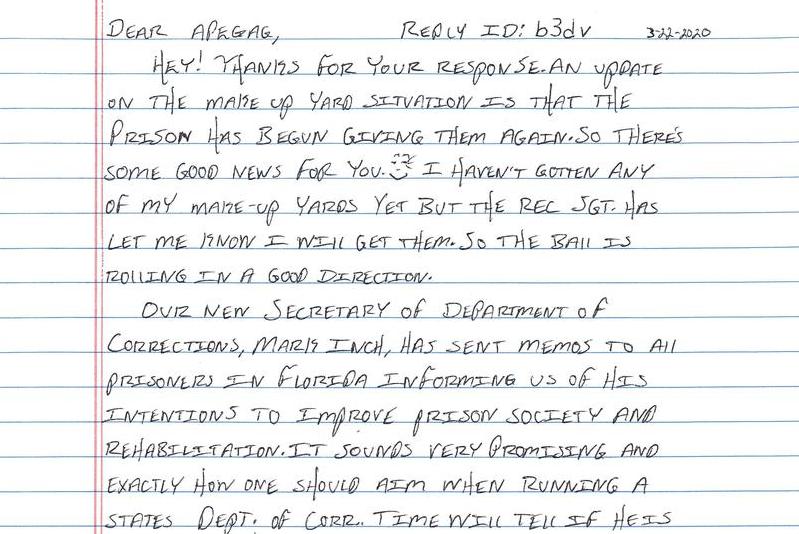 DEAR APEGAG, REPLY ID: b3dv 3-22-2020
HEY! THANKS FOR YOUR RESPONSE. AN UPDATE
ON THE MAKE UP YARD SITUATION IS THAT THE
PRISON HAS BEGUN GIVING THEM AGAIN. SO THERE'S
SOME GOOD NEWS FOR YOU. I HAVEN'T GOTTEN ANY
OF MY MAKE-UP YARDS YET BUT THE REC SGT. HAS
LET ME KNOW I WILL GET THEM. SO THE BALL IS
ROLLING IN A GOOD DIRECTION.
OUR NEW SECRETARY OF DEPARTMENT OF
CORRECTIONS, MARK INCH, HAS SENT MEMOS TO ALL
PRISONERS IN FLORIDA INFORMING US OF HIS
INTENTIONS TO IMPROVE PRISON SOCIETY AND
REHABILITATION. IT SOUNDS VERY PROMISING AND
EXACTLY HOW ONE SHOULD AIM WHEN RUNNING A
STATES DEPT. OF CORR.. TIME WILL TELL IF HE IS